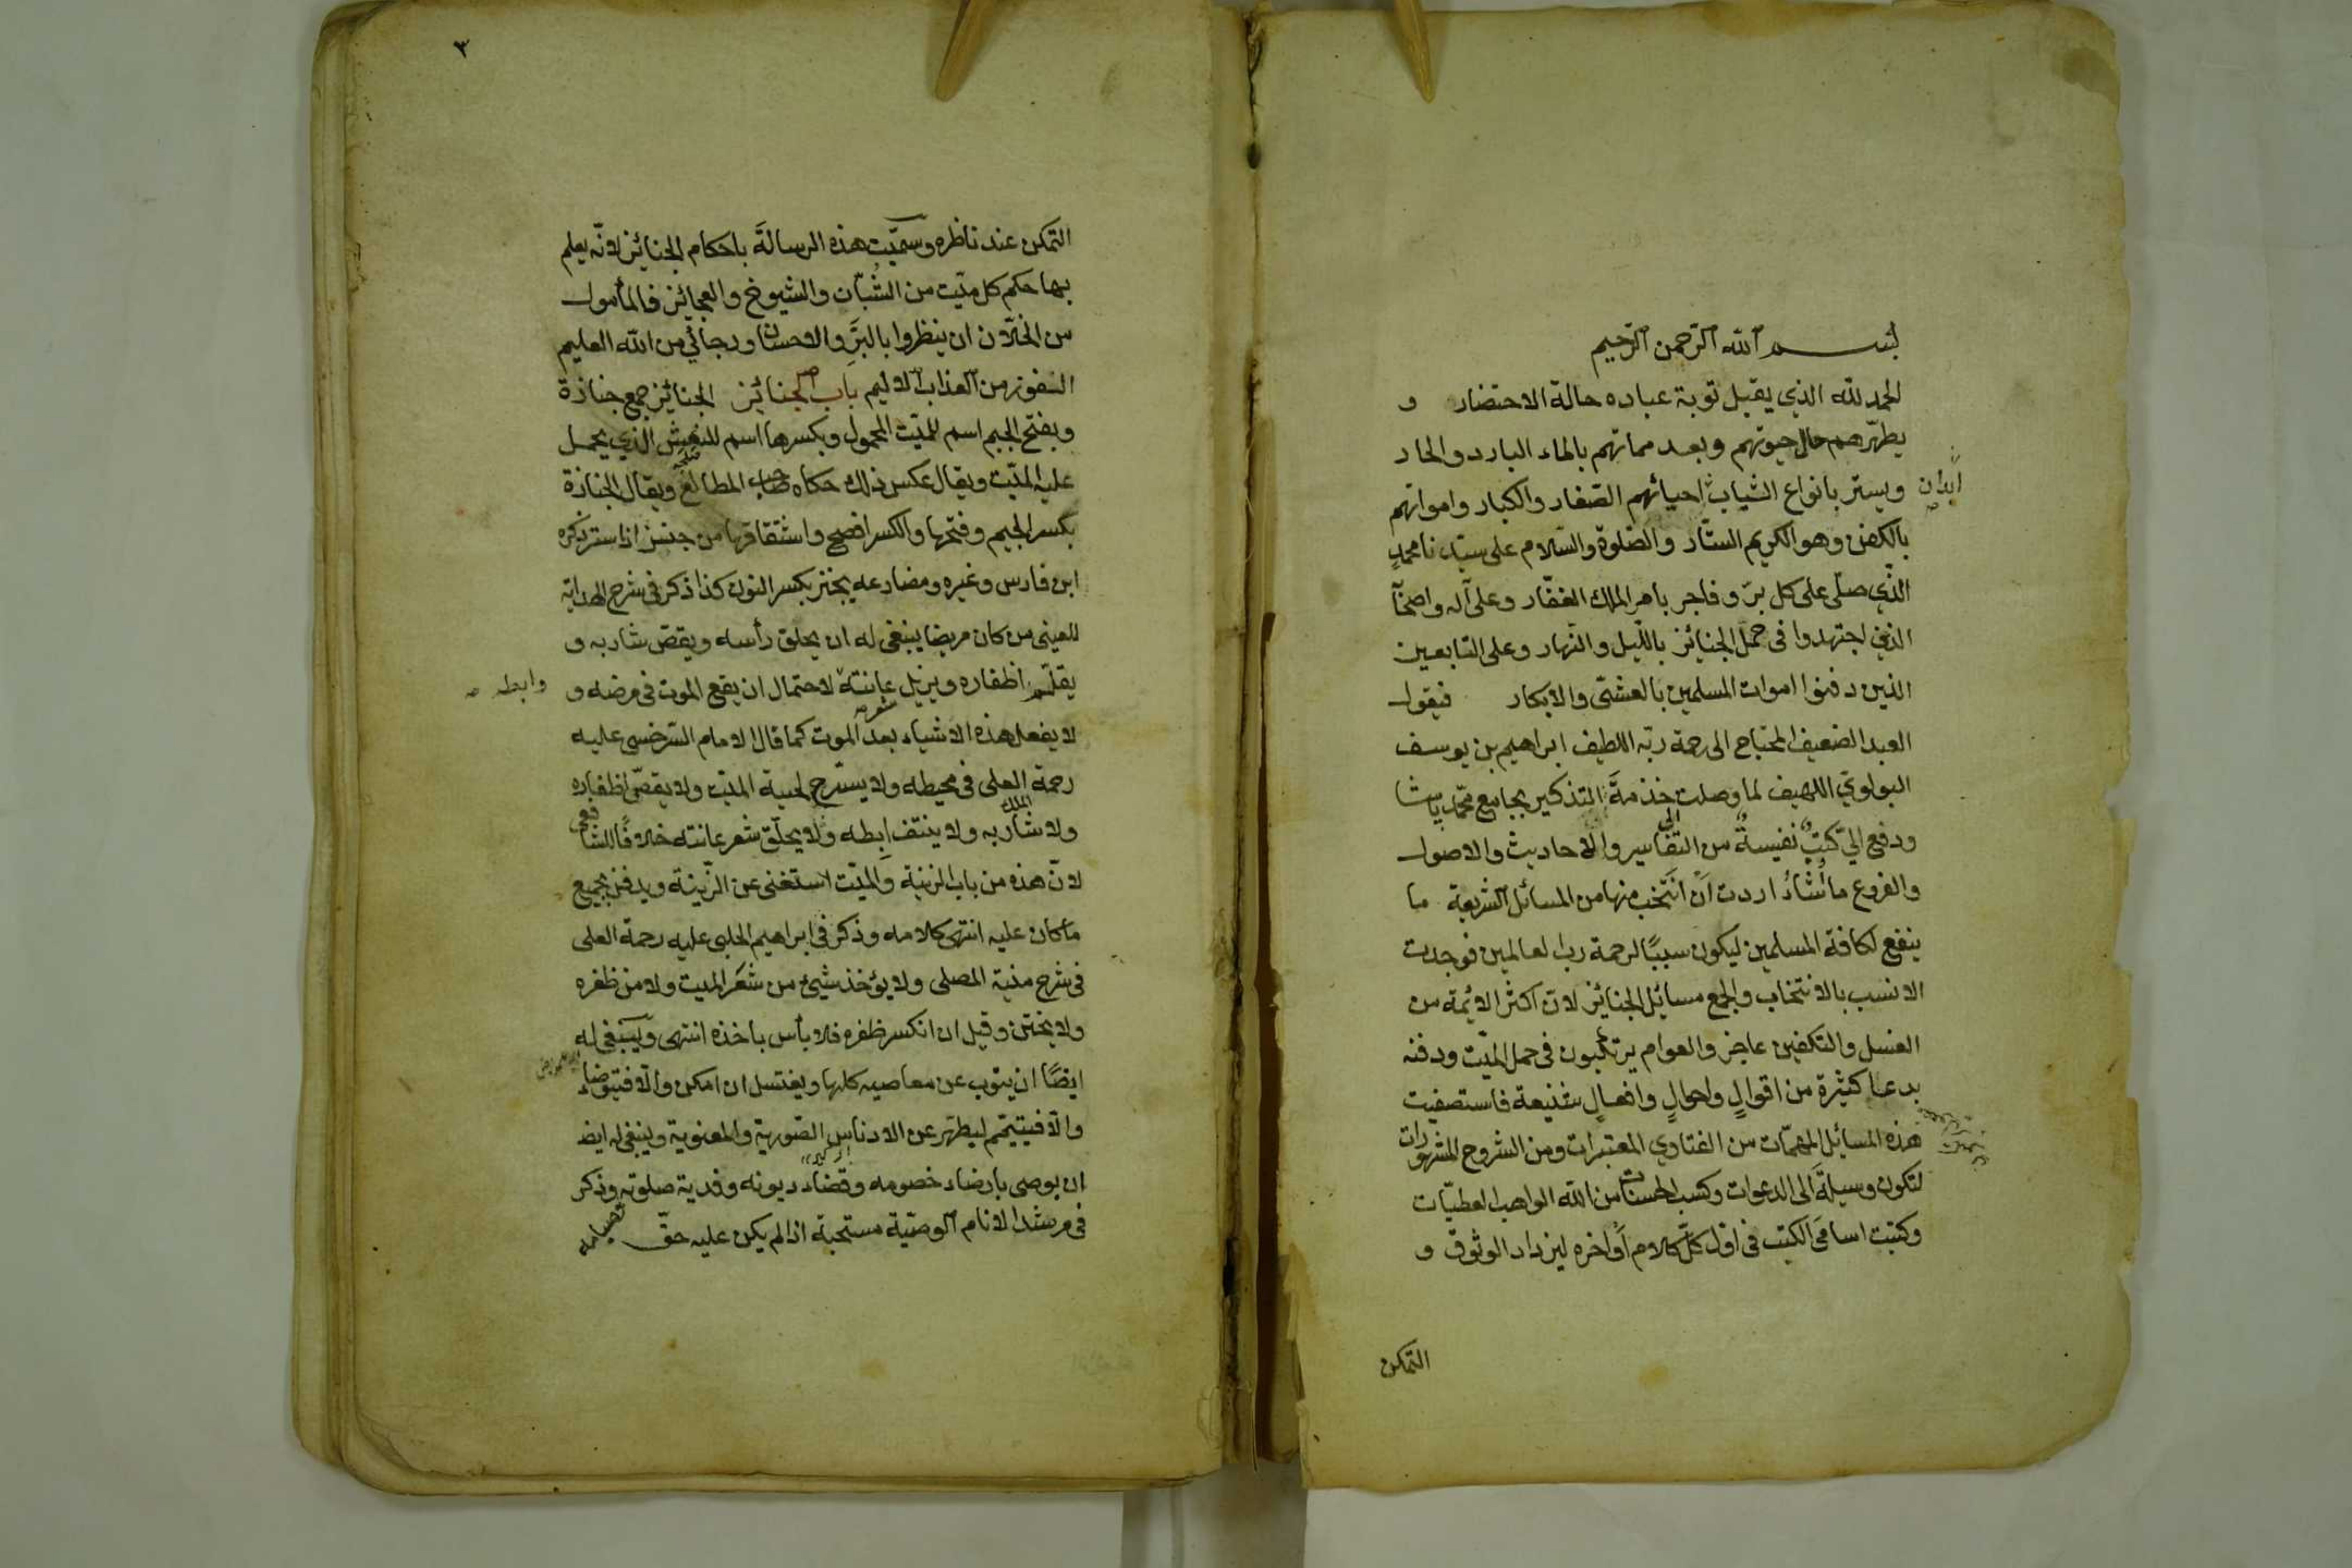 بسم الله الرحمن الرحيم
الحمد لله الذي يقبل توبة عباده حالة الاحتضار و
يطهّرهم حال حيوتهم وبعد مماتهم بالماء البارد والحار
ويستر بانواع الثياب احيائهم الصغار والكبار وامواتهم
ابدان
بالكفن وهو الكريم الستّار والصّلوة والسّلام على سيّدنا محمدٍ
الّذي صلّى على كل برّ وفاجر بامر الملك الغفّار وعلى آله واصحا
الذين اجتهدوا فى حمل الجنائز بالليل والنهار وعلى التابعين
الذين دفنوا اموات المسلمين بالعشىّ والابكار فيقول
العبد الضعيف المحتاج الى رحمة ربّه اللطيف ابراهيم بن يوسف
البولوي اللهيف لما وصلت خذمةَ التذكير بجامع محمّد پاشا
ودفع اليّ كتبٌ نفيسةٌ من التفاسير والاحاديث والاصول
والفروع ما نُشاءُ اردت أن انتخب منها من المسائل الشريعة ما
ينفع لكافة المسلمين ليكون سببًا لرحمة رب العالمين فوجدت
الانسب بالانتخاب والجمع مسائل الجنائز لانّ اكثر الائمة من
الغسل والتكفين عاجز والعوام يرتكبون فى حمل الميّت ودفنه
بدعا كثيرة من اقوالٍ واحوالٍ وافعالٍ شنيعة فاستصفيت
هذه المسائل المهمّات من الفتاوي المعتبرات ومن الشروح المشهورات
لتكون وسيلةَ الى الدعوات وكسب الحسنات من الله الواهب العطيّات
وكتبت اسامىَ الكتب فى اوّل كلّ كلام أواخره ليزداد الوثوق و
التمكن
٣
التمكن عند ناظره وسمّيت هذه الرسالةَ باحكام الجنائز لانّه يعلم
بها حكم كل ميّت من الشُبّان والشيوخ والعجائز فالمأمول
من الخلّان ان ينظروا بالبرّ والاحسان ورجائي من الله العليم
الفوز من العذاب الاليم باب الجنائز الجنائز جمع جنازة
وبفتح الجيم اسم للميّت المحمول وبكسرها اسم للنعش الذي يحمل
عليه الميّت ويقال عكس ذلك حكاه صاحب المطالع ويقال الجنازة
بكسر الجيم وفتحها والكسر افصح واشتقاقها من جنز اذا ستر ذكره
ابن فارس وغيره ومضارعه يجنز بكسر النون كذا ذكر فى شرح الهداية
للعينى من كان مريضا ينبغى له ان يحلق رأسه ويقصّ شاربه و
يقلّم اظفاره ويزيل عانته لاحتمال ان يقع الموت فى مرضه و
شعر
وابطه صح
لا يفعل هذه الاشياء بعد الموت كما قال الامام السّرخسى عليه
رحمة العلى فى محيطه ولا يسرّح لحية الميّت ولا يقصّ اظفاره
ولا شاربه ولا ينتف ابطه ولا يحلّق شعر عانته خلافًا للشافعى
لانّ هذه من باب الزينة والميّت استغنى عن الزّينة ويدفن بجميع
ما كان عليه انتهى كلامه وذكر فى ابراهيم الحلبى عليه رحمة العلى
فى شرح منية المصلى ولا يؤخذ شيئ من شعر الميت ولا من ظفره
ولا يختن وقيل ان انكسر ظفره فلا بأس باخذه انتهى وينبغى له
ايضًا ان يتوب عن معاصيه كلها ويغتسل ان امكن والّا فيتوضاء
والّا فيتيمّم ليطهّر عن الادناس الصّورية والمعنوية وينبغى له ايضا
ان يوصى بارضاء خصومه وقضاء ديونه وفدية صلوته وذكر
فى مرشد الانام الوصيّة مستحبّة اذا لم يكن عليه حقّ